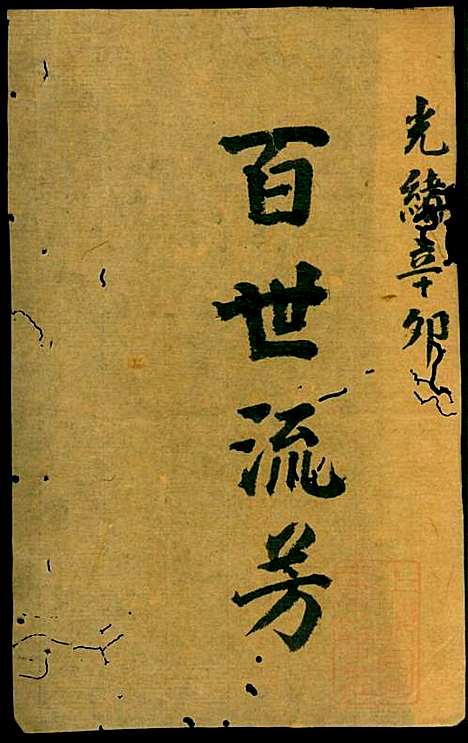 光緒辛卯
百世流芳